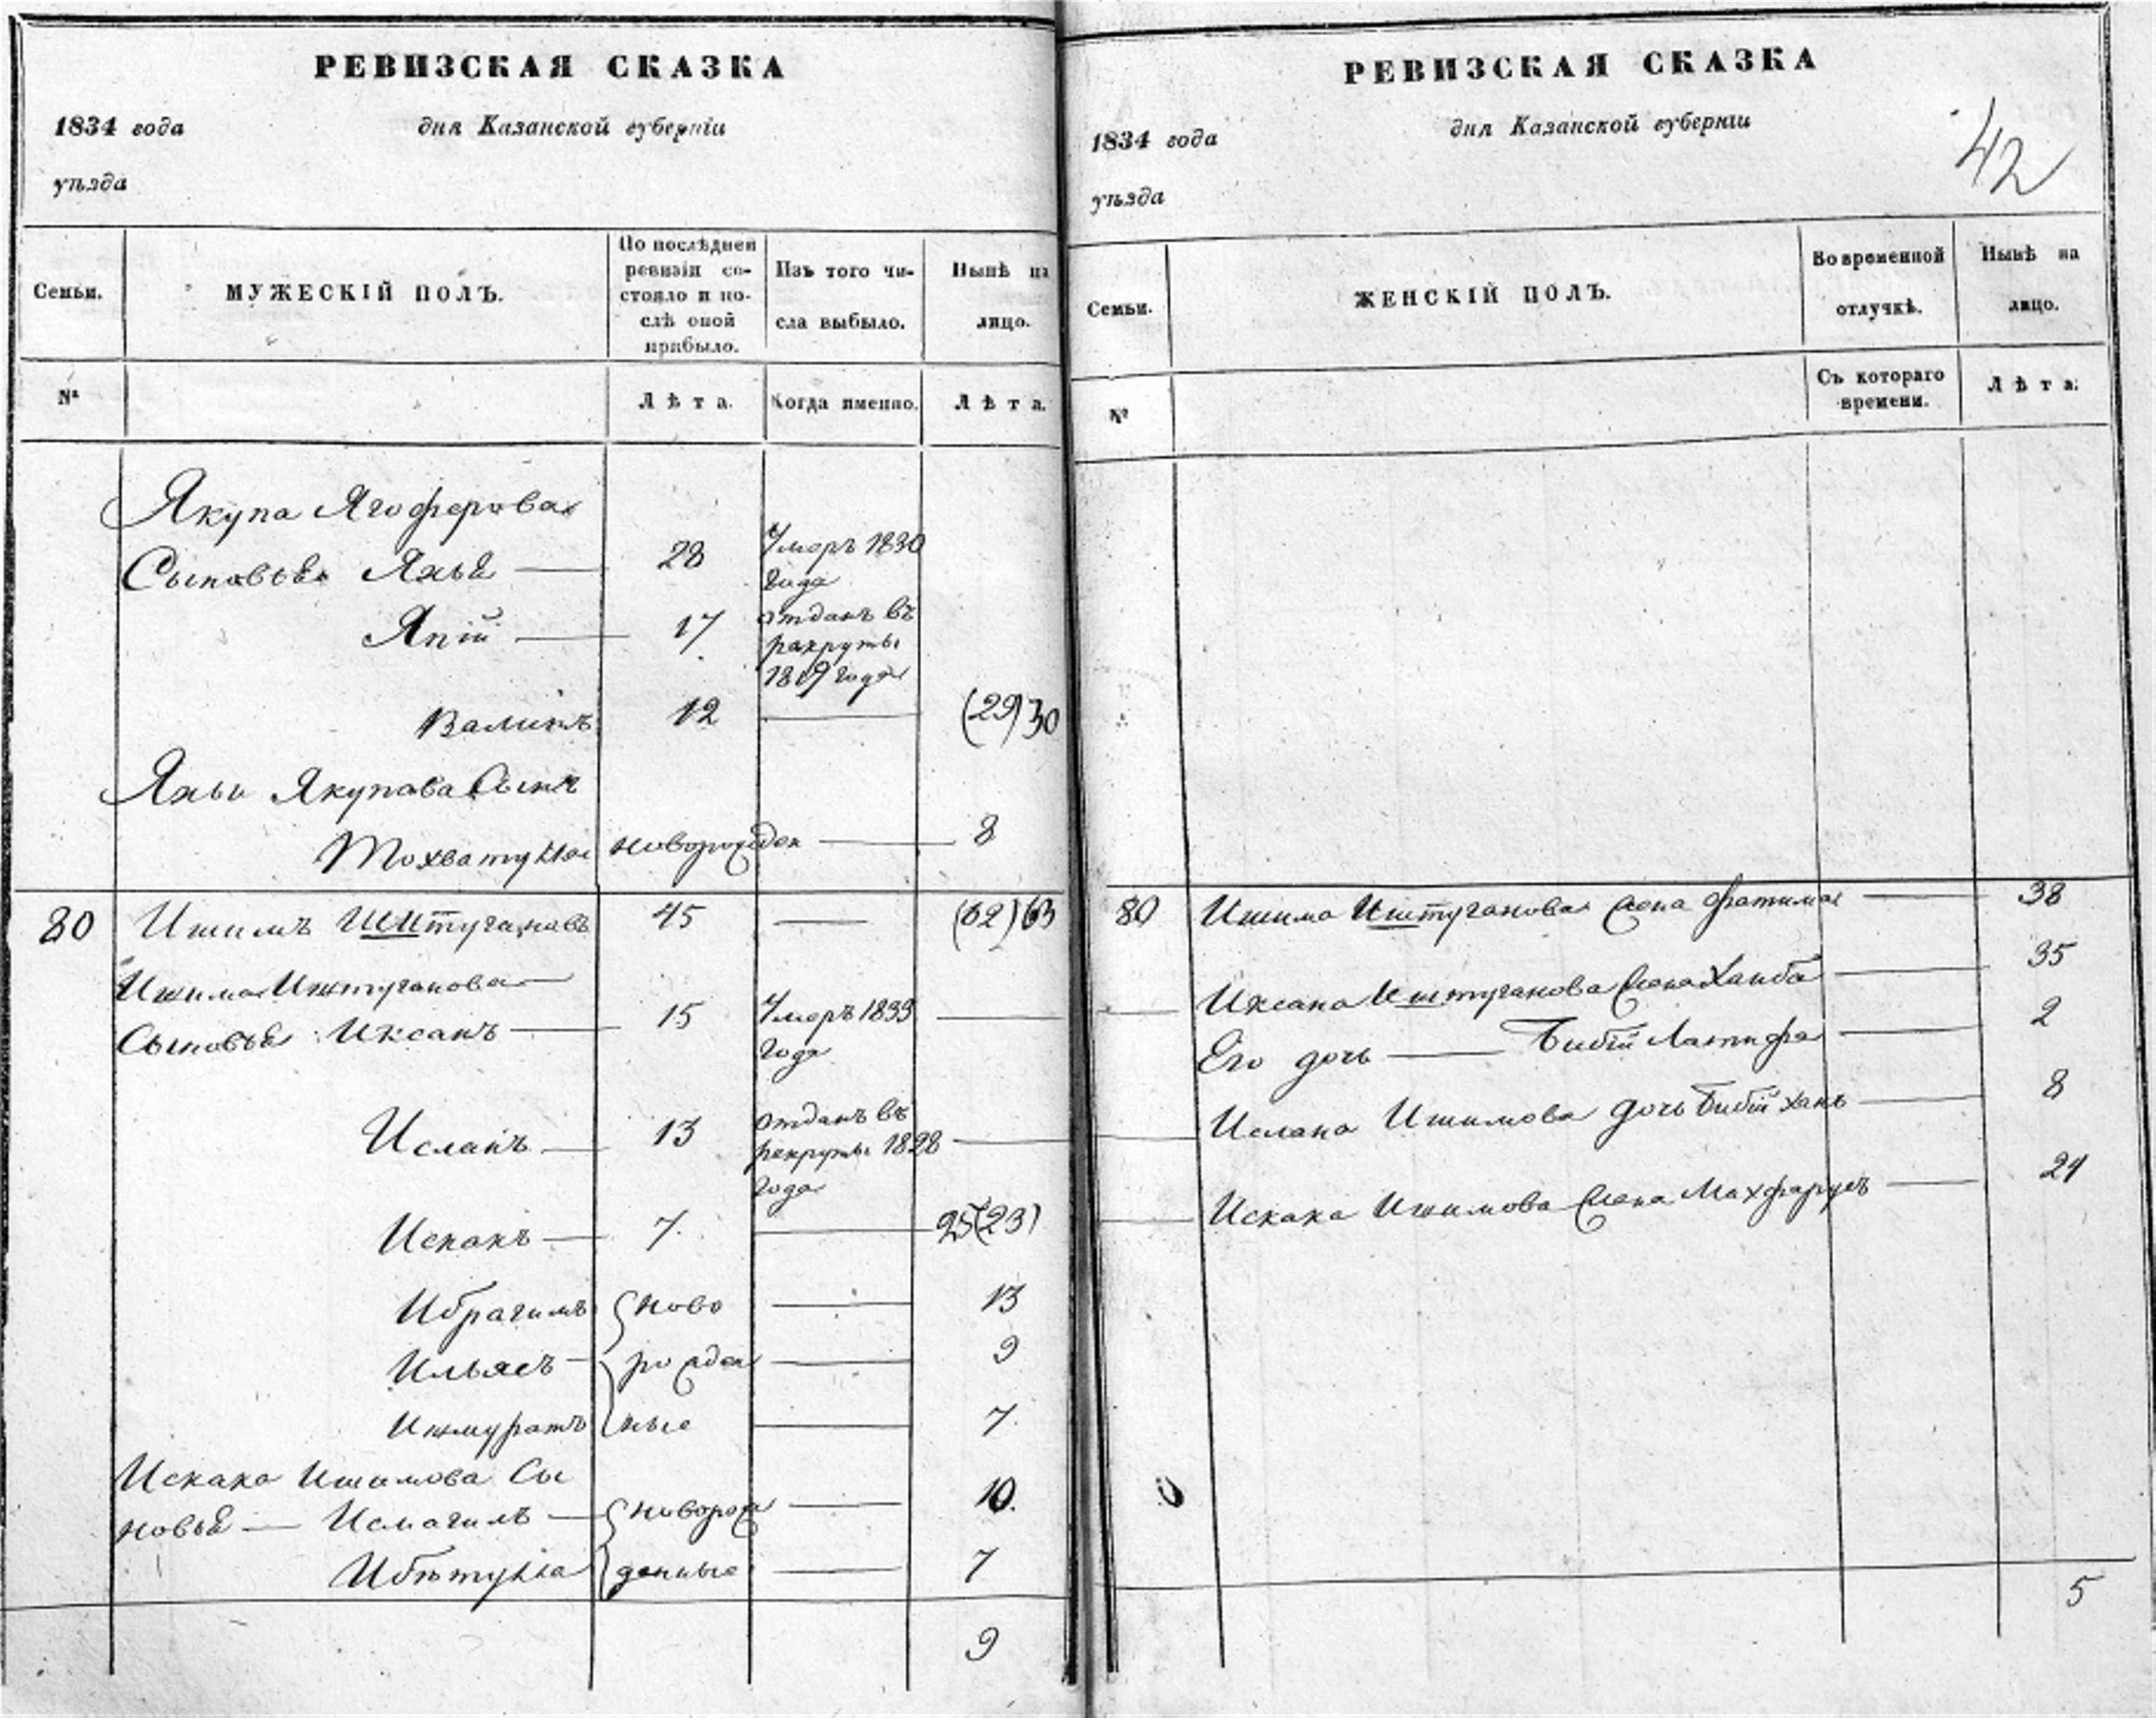 РЕВИЗСКАЯ СКАЗКА
1834 года дня Казанской губернiи
уѣзда
Семьи.
МУЖЕСКIЙ ПОЛЪ.
По послѣдней ревизiи со-
стояло и по-
слѣ оной
прибыло.
Изъ того чи-
сла выбыло.
Нынѣ на
лицо.
№
Лѣта.
Когда именно.
Лѣта.
Якупа Ягоферова
Сыновья Яхья — 28 Умеръ 1830
года
Япiй — 17 отданъ въ
рекруты
1819 года
Валитъ 12 — (29) 30
Яхьи Якупова Сынъ
новорожден — 8
80 Ишимъ Иштугановъ 45 — (62) 63
Ишима Иштуганова
Сыновья Иксанъ — 15 Умеръ 1833 —
года
Исланъ — 13 отданъ въ
рекруты 1828 —
года
Искакъ — 7. — 25 (23)
Ибрагимъ ново — 13
Ильясъ — рожден — 9
Ишмуратъ ные — 7
Искака Ишимова Сы
новья — Исмагилъ — новорож — 10.
денные — 7
9
РЕВИЗСКАЯ СКАЗКА
1834 года дня Казанской губернiи
уѣзда
42
Семьи.
ЖЕНСКIЙ ПОЛЪ.
Во временной
отлучкѣ.
Нынѣ на
лицо.
№
Съ котораго
времени.
Лѣта.
80 Ишима Иштуганова жена Фатима — 38
Иксана Иштуганова жена Ханба — 35
Его дочь — Бибiй Латифа — 2
Ислана Ишимова дочь Бибiй хань — 8
Искака Ишимова жена — 24
5